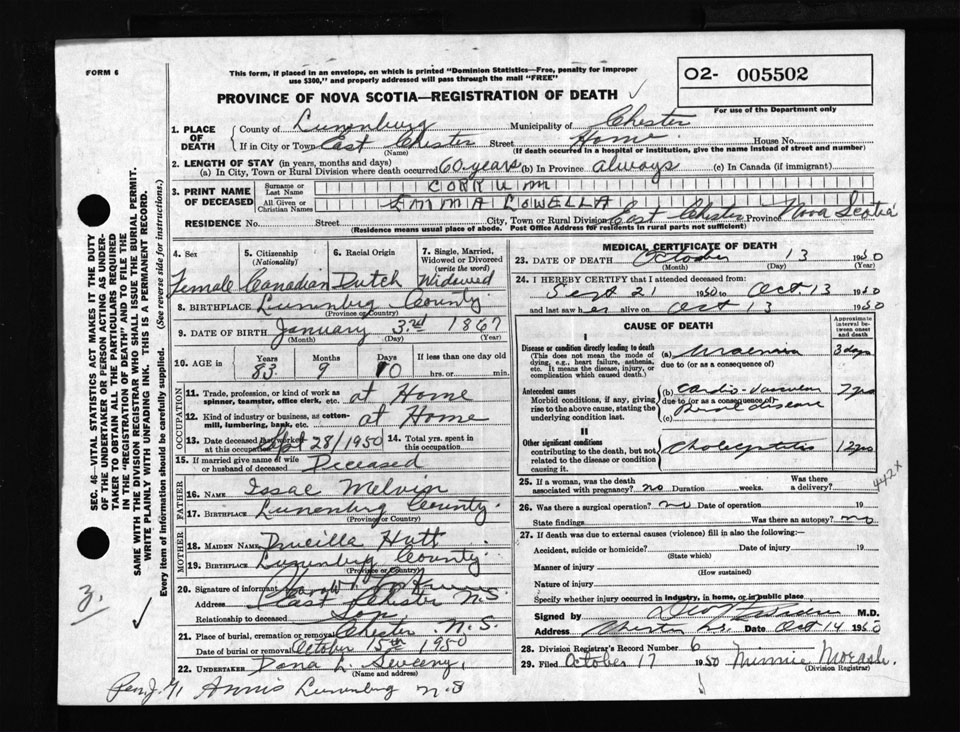 FORM 6
This form, if placed in an envelope, on which is printed "Dominion Statistics—Free, penalty for improper
use $300," and properly addressed will pass through the mail "FREE"
O2- 005502
For use of the Department only
PROVINCE OF NOVA SCOTIA—REGISTRATION OF DEATH ✓
1. PLACE OF DEATH
County of Lunenburg Municipality of Chester
If in City or Town East Chester Street Home House No.
(Name) (If death occurred in a hospital or institution, give the name instead of street and number)
2. LENGTH OF STAY (in years, months and days)
(a) In City, Town or Rural Division where death occurred 60 years (b) In Province always (c) In Canada (if immigrant)
3. PRINT NAME OF DECEASED
Surname or Last Name CORKUM
All Given or Christian Names EMMA LOWELLA
RESIDENCE No. Street City, Town or Rural Division East Chester Province Nova Scotia
(Residence means usual place of abode. Post Office Address for residents in rural parts not sufficient)
4. Sex Female
5. Citizenship (Nationality) Canadian
6. Racial Origin Dutch
7. Single, Married, Widowed or Divorced (write the word) Widowed
8. BIRTHPLACE Lunnbug County
(Province or Country)
9. DATE OF BIRTH January 3rd 1867
(Month) (Day) (Year)
10. AGE in Years 83 Months 9 Days 10 If less than one day old hrs. or min.
OCCUPATION
11. Trade, profession, or kind of work as spinner, teamster, office clerk, etc. at Home
12. Kind of industry or business, as cotton-mill, lumbering, bank, etc. at Home
13. Date deceased last worked at this occupation Sept 28/1950 14. Total yrs. spent in this occupation
15. If married give name of wife or husband of deceased Deceased
FATHER
16. NAME Issac Melvin
17. BIRTHPLACE Lunenburg County
(Province or Country)
MOTHER
18. MAIDEN NAME Drucilla Hatt
19. BIRTHPLACE Lunenburg County
(Province or Country)
20. Signature of informant
Address East Chester N.S.
Relationship to deceased Son
21. Place of burial, cremation or removal Chester N.S.
Date of burial or removal October 15th 1950
22. UNDERTAKER Dona L. Seveeny
(Name and address)
Annis Lunenburg N S
MEDICAL CERTIFICATE OF DEATH
23. DATE OF DEATH October 13 1950
(Month) (Day) (Year)
24. I HEREBY CERTIFY that I attended deceased from:
Sept 21 1950 to Oct. 13 1950
and last saw her alive on Oct 13 1950
CAUSE OF DEATH
Approximate interval between onset and death
I
Disease or condition directly leading to death
(This does not mean the mode of dying, e.g., heart failure, asthenia, etc. It means the disease, injury, or complication which caused death.)
(a) Uraemia 3 days
due to (or as a consequence of)
Antecedent causes
Morbid conditions, if any, giving rise to the above cause, stating the underlying condition last.
(b) Cardio-vascular 7 yrs
due to (or as a consequence of)
Renal disease
(c)
II
Other significant conditions
contributing to the death, but not related to the disease or condition causing it.
Cholecystitis 12 yrs
442X
25. If a woman, was the death associated with pregnancy? no Duration weeks. Was there a delivery?
26. Was there a surgical operation? no Date of operation 19
State findings Was there an autopsy? no
27. If death was due to external causes (violence) fill in also the following:—
Accident, suicide or homicide? Date of injury 19
(State which)
Manner of injury
(How sustained)
Nature of injury
Specify whether injury occurred in industry, in home, or in public place
Signed by M.D.
Address Chester N.S. Date Oct 14 1950
28. Division Registrar's Record Number 6
29. Filed October 17 1950 Minnie Morash
(Division Registrar)
SEC. 46—VITAL STATISTICS ACT MAKES IT THE DUTY
OF THE UNDERTAKER OR PERSON ACTING AS UNDER-
TAKER TO OBTAIN ALL THE PARTICULARS REQUIRED
IN THE "REGISTRATION OF DEATH" AND TO FILE THE
SAME WITH THE DIVISION REGISTRAR WHO SHALL ISSUE THE BURIAL PERMIT.
WRITE PLAINLY WITH UNFADING INK. THIS IS A PERMANENT RECORD.
Every item of information should be carefully supplied. (See reverse side for instructions.)